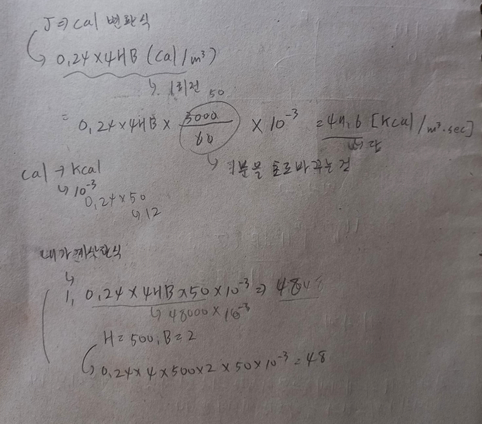 J ⇒ cal 변환식
0,24 × 4HB (cal/m³)
↳ 1회전
50
= 0,24 × 4HB × 3000/60 × 10⁻³ = 47,6 [kcal/m³·sec]
↳ 1분을 초로 바꾸는 것
cal → kcal
↳ 10⁻³
0,24 × 50
↳ 12
내가 계산한 식
1, 0,24 × 4HB × 50 × 10⁻³ ⇒ 48
↳ 48000 × 10⁻³
H = 500, B = 2
↳ 0,24 × 4 × 500 × 2 × 50 × 10⁻³ = 48